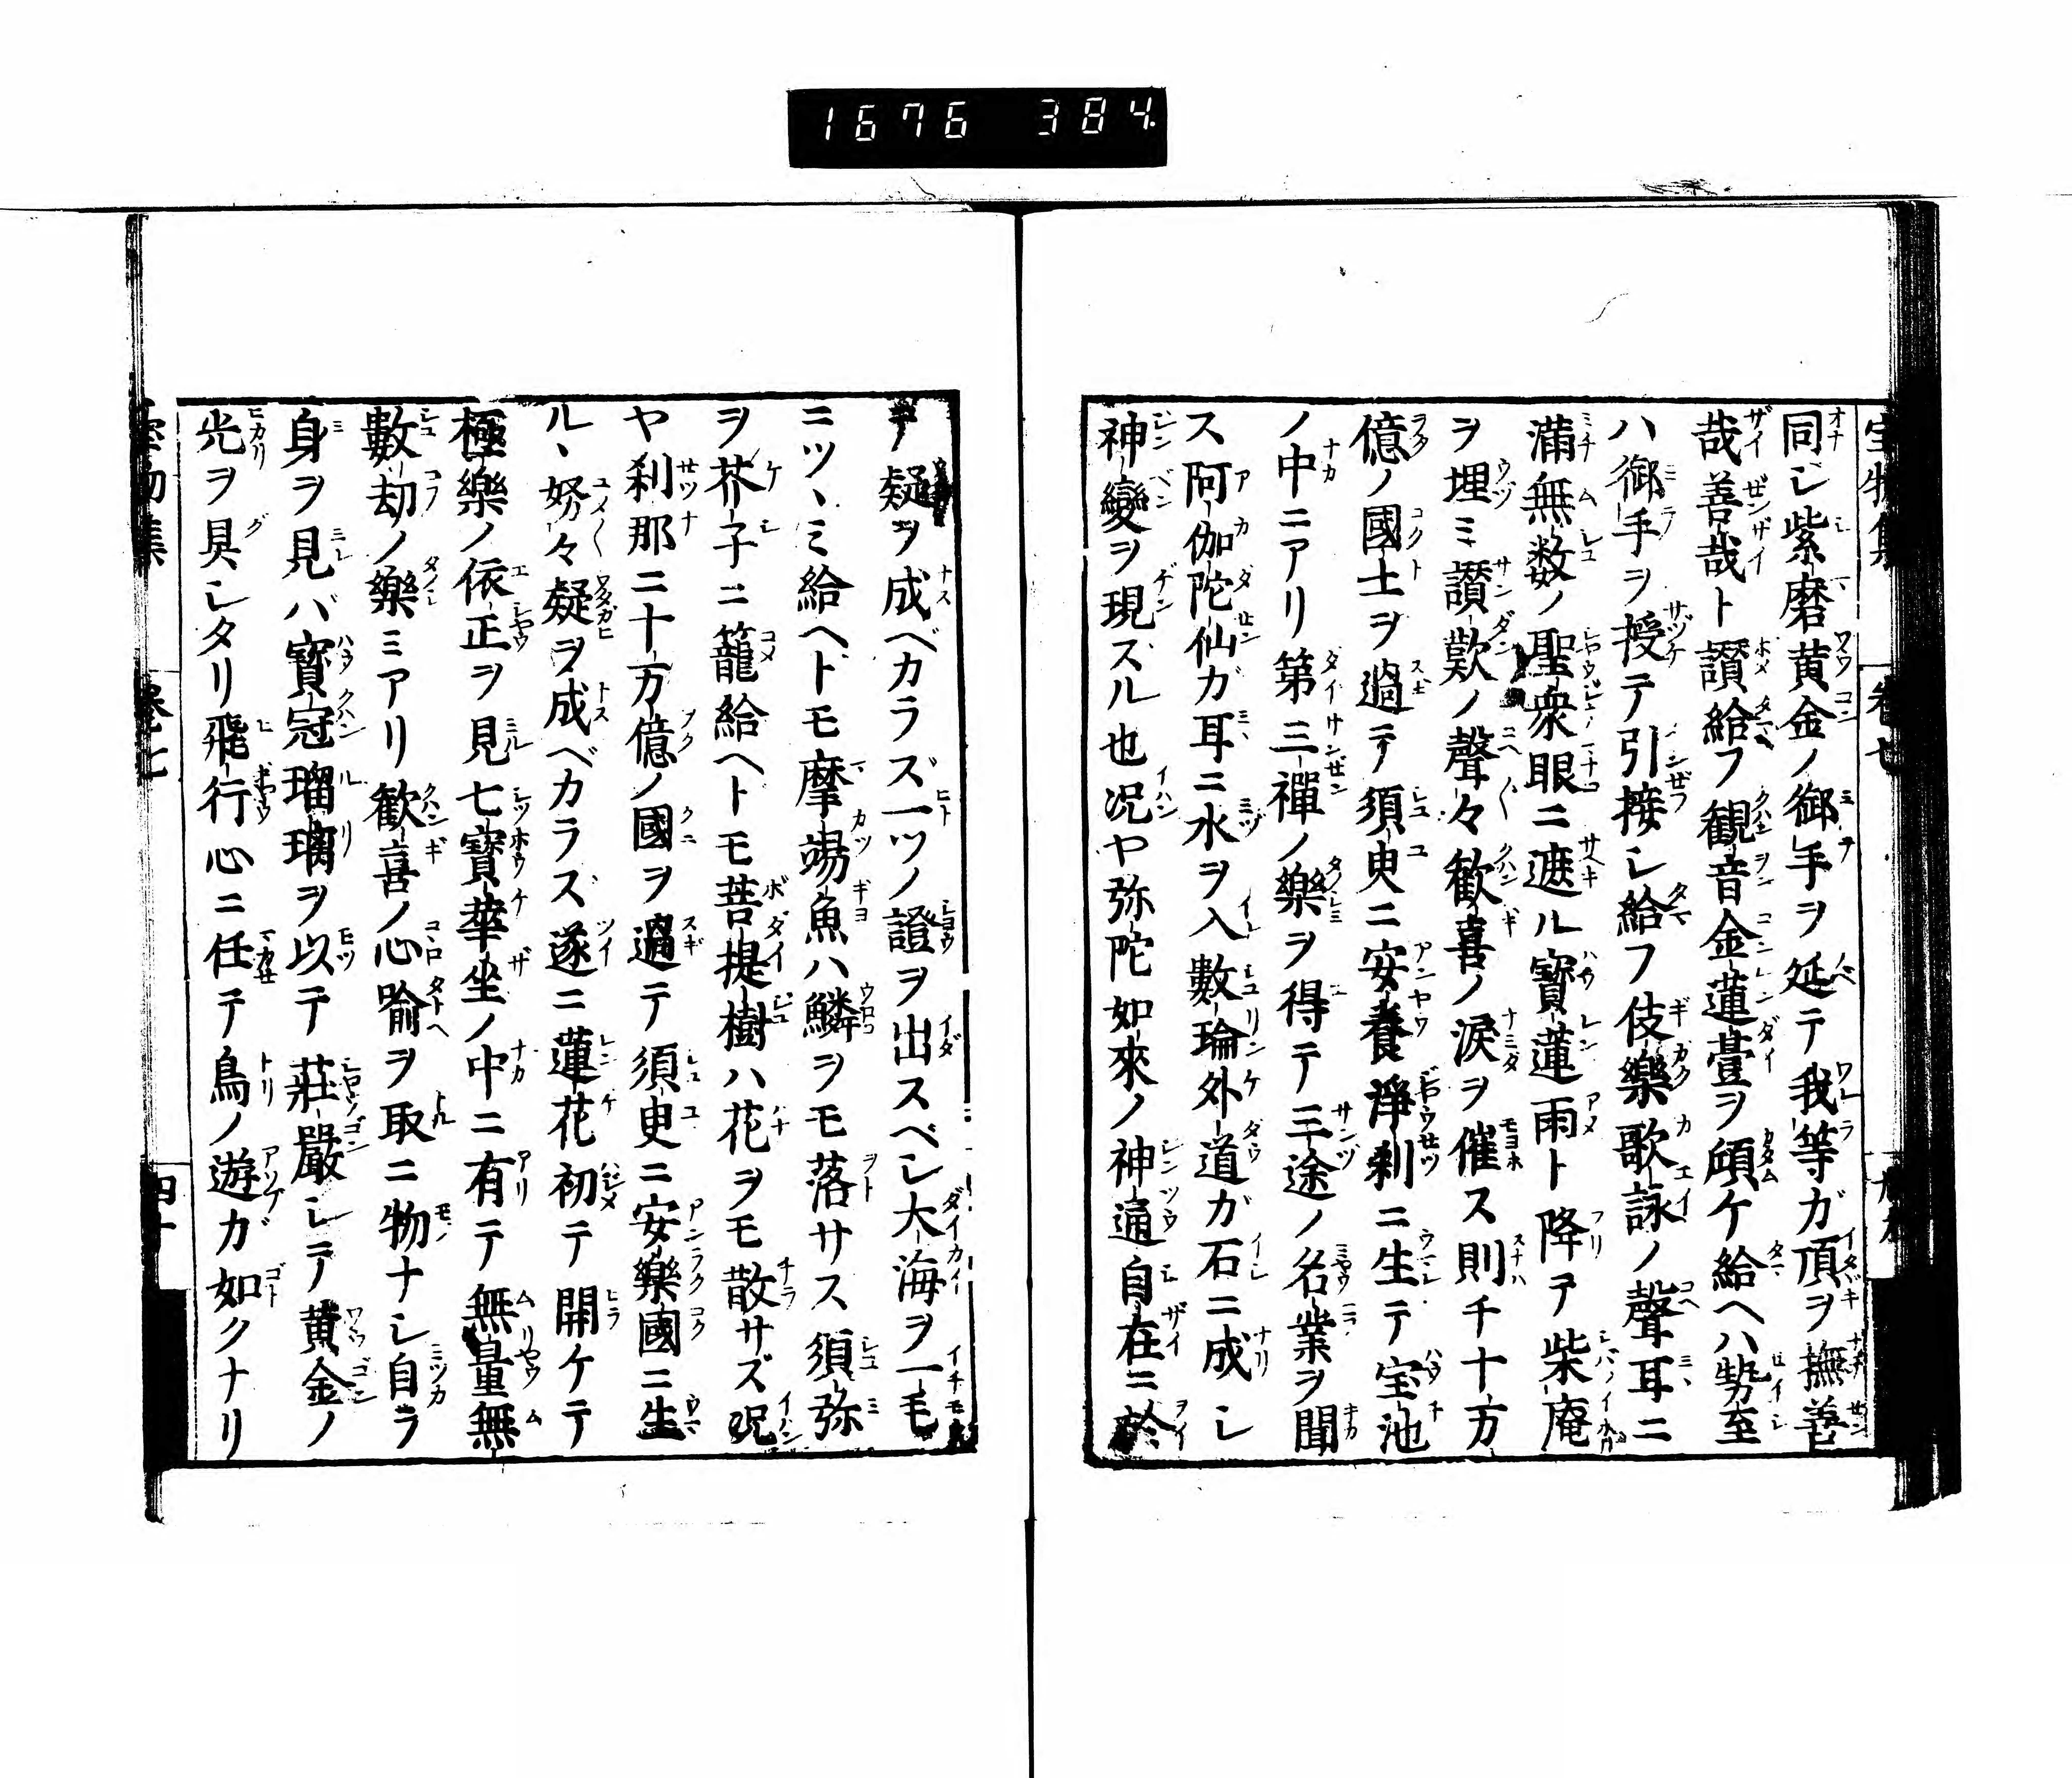 1676 384.
同シ紫磨黄金ノ御手ヲ延テ我等ガ頂ヲ撫善
哉善哉ト讃給フ観音金蓮臺ヲ傾ケ給ヘハ勢至
ハ御手ヲ授テ引接シ給フ伎樂歌詠ノ聲耳ニ
満無数ノ聖衆眼ニ遮ル寳蓮雨ト降テ柴庵
ヲ埋ミ讃歎ノ聲々歓喜ノ涙ヲ催ス則チ十万
億ノ國土ヲ過テ須臾ニ安養淨刹ニ生テ宝池
ノ中ニアリ第三禪ノ樂ヲ得テ三途ノ名業ヲ聞
ス阿伽陀仙ガ耳ニ水ヲ入數瑜外道ガ石ニ成シ
神變ヲ現スル也况ヤ弥陀如來ノ神通自在ニ於
テ疑ヲ成ベカラズ一ツノ證ヲ出スベシ大海ヲ一毛
ニツヽミ給ヘトモ摩竭魚ハ鱗ヲモ落サス須弥
ヲ芥子ニ籠給ヘトモ菩提樹ハ花ヲモ散サズ况
ヤ刹那ニ十万億ノ國ヲ過テ須臾ニ安樂國ニ生
ルヽ努々疑ヲ成ベカラズ遂ニ蓮花初テ開ケテ
極樂ノ依正ヲ見七寳華坐ノ中ニ有テ無量無
數劫ノ樂ミアリ歓喜ノ心喻ヲ取ニ物ナシ自ラ
身ヲ見バ寳冠瑠璃ヲ以テ荘嚴シテ黄金ノ
光ヲ具シタリ飛行心ニ任テ鳥ノ遊ガ如クナリ